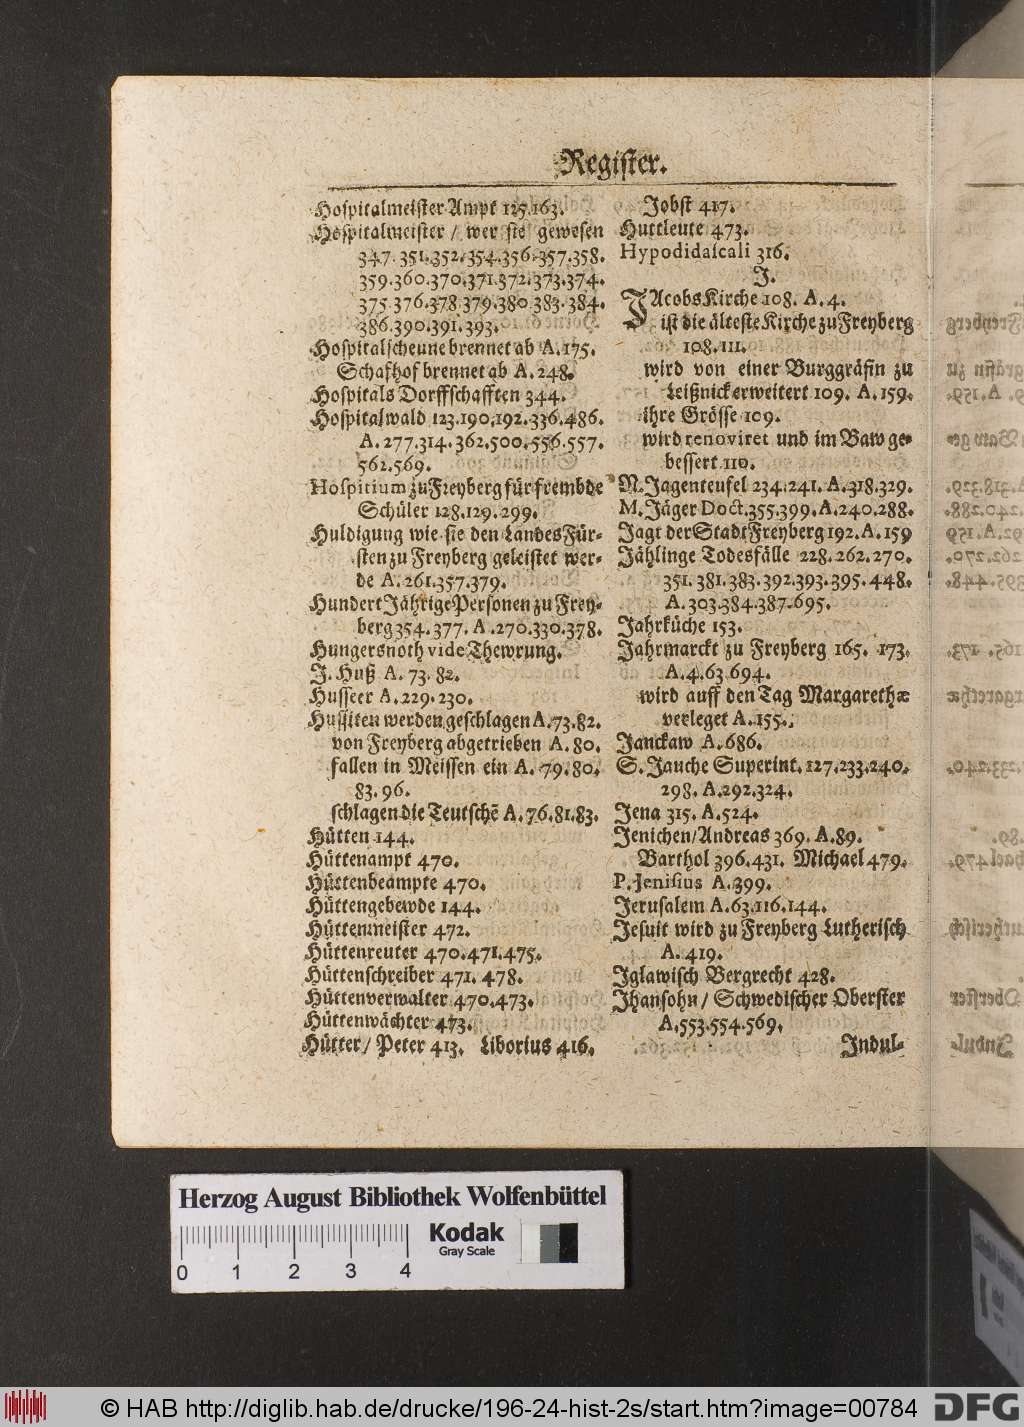 Register.
Hospitalmeister Ampt 125.163.
Hospitalmeister / wer sie gewesen
347. 351.352.354.356.357.358.
359.360.370.371.372.373.374.
375.376.378.379.380.383.384.
386.390.391.393.
Hospitalscheune brennet ab A.175.
Schafhof brennet ab A. 248.
Hospitals Dorffschafften 344.
Hospitalwald 123.190.192.336.486.
A. 277.314.362.500.556.557.
562.569.
Hospitium zu Freyberg für frembde
Schüler 128.129.299.
Huldigung wie sie den LandesFür-
sten zu Freyberg geleistet wer-
de A. 261.357.379.
Hundert Jährige Personen zu Frey-
berg 354. 377. A .270.330.378.
Hungersnoth vide Thewrung.
J. Huß A. 73. 82.
Husseer A.229.230.
Hussiten werden geschlagen A.73.82.
von Freyberg abgetrieben A. 80.
fallen in Meissen ein A. 79.80.
83. 96.
schlagen die Teutschē A. 76.81.83.
Hütten 144.
Hüttenampt 470.
Hüttenbeampte 470.
Hüttengebewde 144.
Hüttenmeister 472.
Hüttenreuter 470.471.475.
Hüttenschreiber 471. 478.
Hüttenverwalter 470.473.
Hüttenwächter 473.
Hütter / Peter 413. Liborius 416.
Jobst 417.
Huttleute 473.
Hypodidascali 316.
J.
JAcobs Kirche 108. A. 4.
ist die älteste Kirche zu Freyberg
108. 111.
wird von einer Burggräfin zu
Leißnick erweitert 109. A. 159.
ihre Grösse 109.
wird renoviret und im Baw ge-
bessert 110.
M. Jagenteufel 234.241. A.318.329.
M. Jäger Doct.355.399.A.240.288.
Jagt der Stadt Freyberg 192. A. 159
Jählinge Todesfälle 228.262.270.
351. 381.383.392.393.395.448.
A.303.384.387.695.
Jahrküche 153.
Jahrmarckt zu Freyberg 165. 173.
A.4.63 694.
wird auff den Tag Margarethæ
verleget A. 155.
Janckaw A. 686.
S. Jauche Superint. 127.233.240.
298. A.292.324.
Jena 315. A.524.
Jenichen / Andreas 369. A.89.
Barthol 396.431. Michael 479.
P. Jenisius A.399.
Jerusalem A.63.116.144.
Jesuit wird zu Freyberg Lutherisch
A. 419.
Iglawisch Bergrecht 428.
Jhansohn / Schwedischer Oberster
A.553.554.569.
Indul-
Herzog August Bibliothek Wolfenbüttel
Kodak
Gray Scale
0 1 2 3 4
© HAB http://diglib.hab.de/drucke/196-24-hist-2s/start.htm?image=00784
DFG